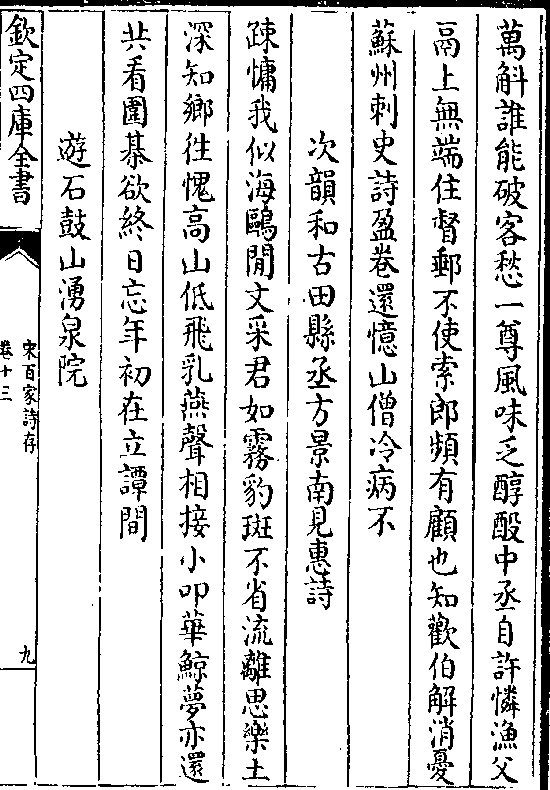 萬斛誰能破客愁一尊風味乏醇酘中丞自許憐漁父
鬲上無端住督郵不使索郎頻有顧也知歡伯解消憂
蘇州刺史詩盈卷還憶山僧冷病不
次韻和古田縣丞方景南見惠詩
踈慵我似海鷗閒文采君如霧豹斑不省流離思樂土
深知鄉徃愧高山低飛乳燕聲相接小叩華鯨夢亦還
共看圍棊欲終日忘年初在立譚間
遊石鼓山湧泉院
欽定四庫全書
宋百家詩存
卷十三
九